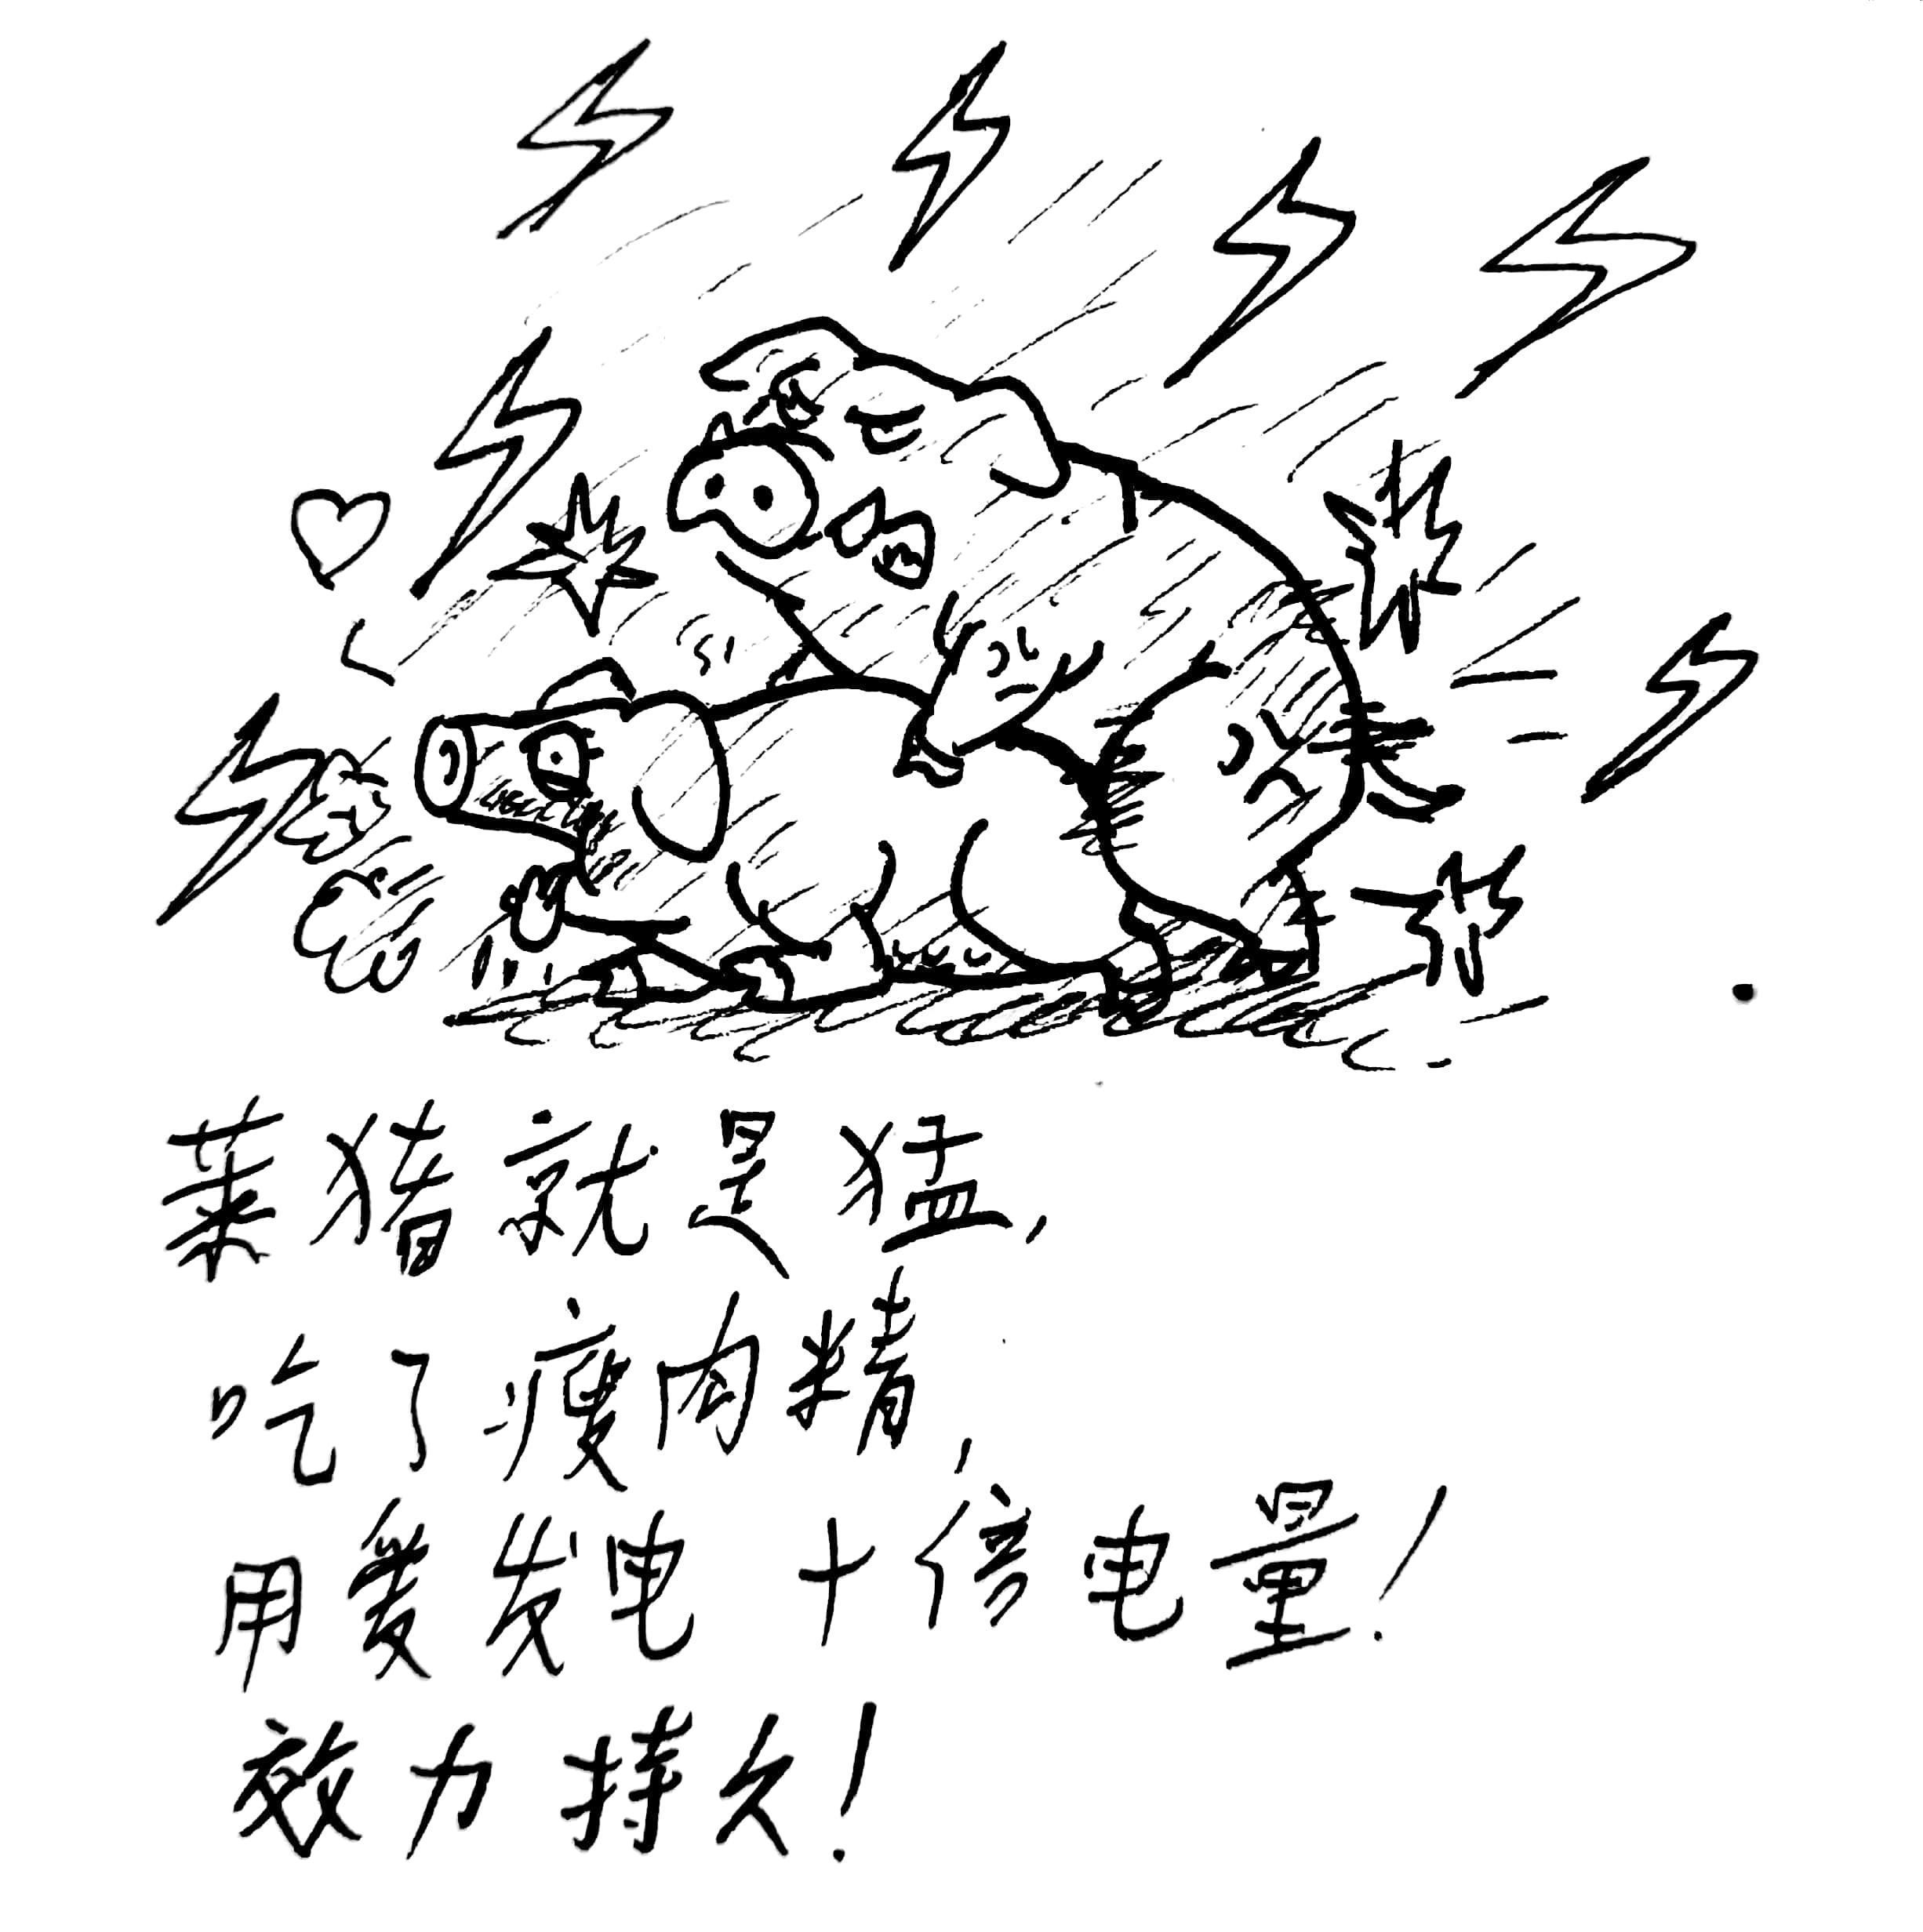 莱猪就是猛,
吃了瘦肉精,
用爱发电 十倍电量!
效力持久!